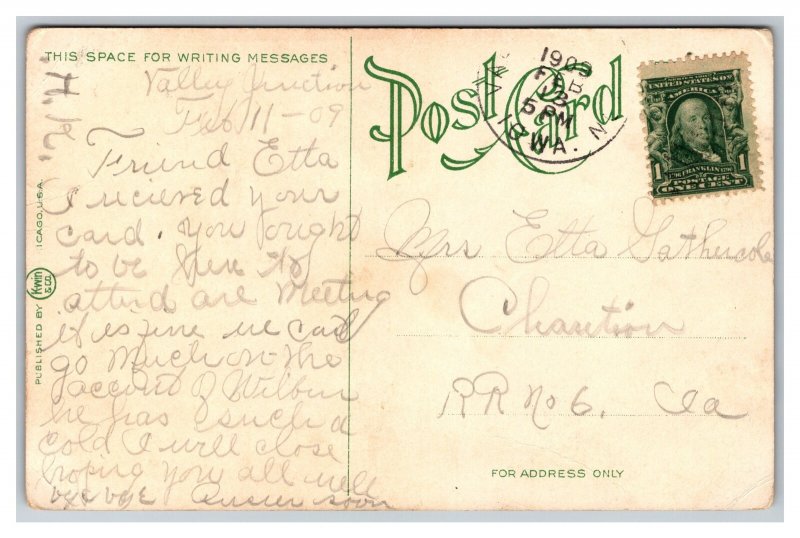 THIS SPACE FOR WRITING MESSAGES
Valley Junction
Feb 11-09
Friend Etta
I recieved your
card. you ought
to be here to
attend are Meeting
it is fine we cant
go Much on the
accout of Wilbur
he has such a
cold I will close
hoping you all well
bye bye Answer soon
PUBLISHED BY Kwin & CO. ICAGO, U.S.A.
Post Card
1909
FEB
13
5 PM
IOWA.
SERIES 1902
UNITED STATES OF
AMERICA
1 FRANKLIN 1
POSTAGE
ONE CENT
Mrs Etta Gathercole
Chariton
RR No 6. Ia
FOR ADDRESS ONLY